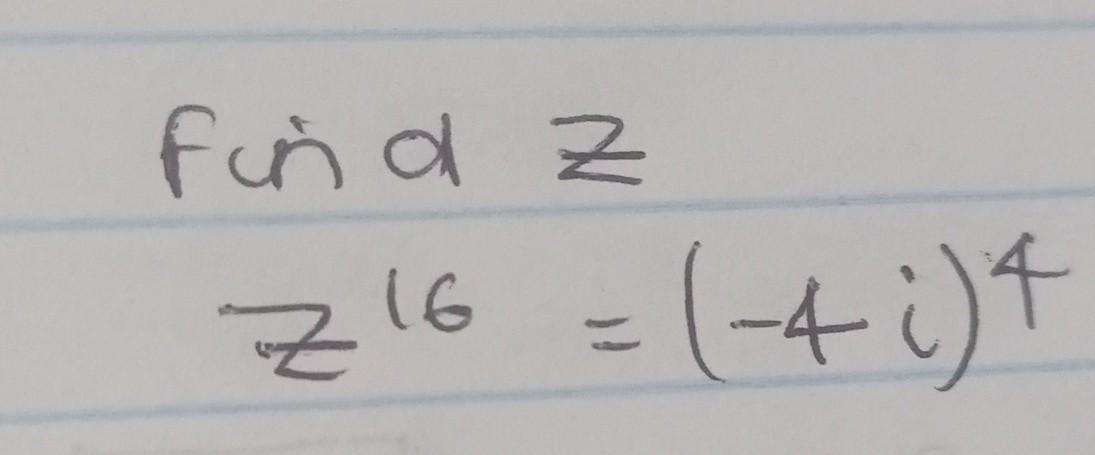 Find z
z^16 = (-4i)^4